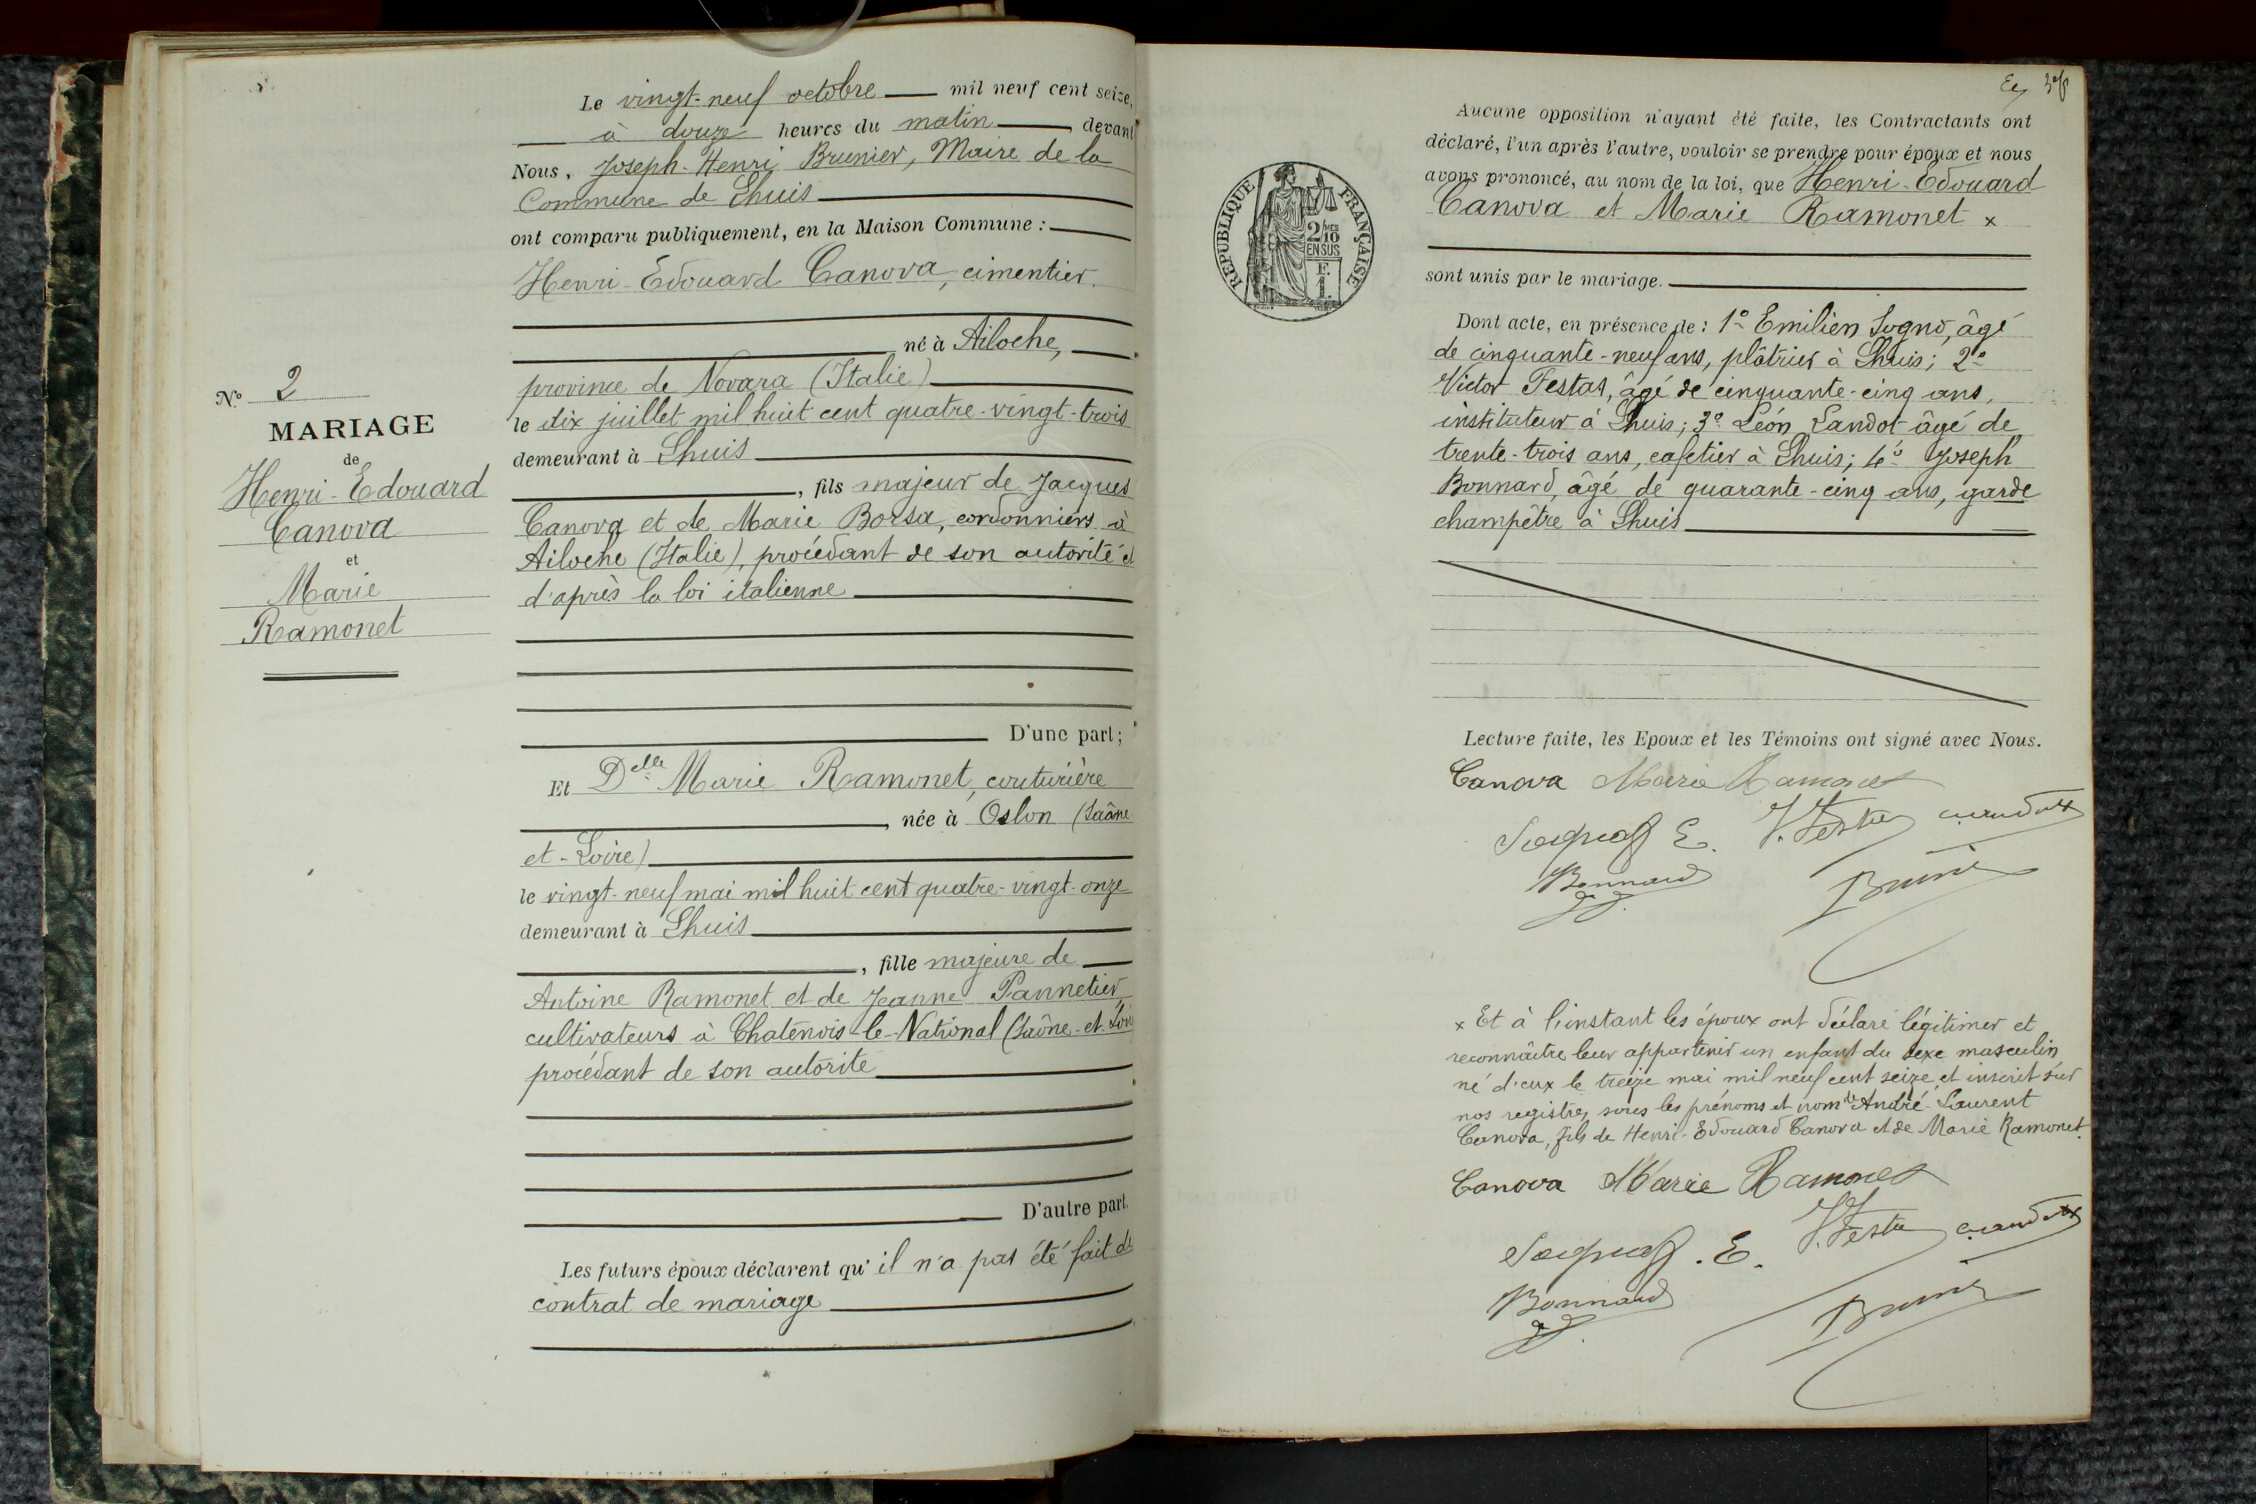 Le vingt-neuf octobre mil neuf cent seize,
à douze heures du matin, devant
Nous, Joseph-Henri Brunier, Maire de la
Commune de Lhuis
ont comparu publiquement, en la Maison Commune :
Henri-Edouard Canova, cimentier.
né à Ailoche,
province de Novara (Italie)
le dix juillet mil huit cent quatre-vingt-trois
demeurant à Lhuis
, fils majeur de Jacques
Canova et de Marie Borsa, cordonniers à
Ailoche (Italie), procédant de son autorité et
d'après la loi italienne
D'une part;
Et Delle Marie Ramonet, couturière
, née à Oslon (Saône
et-Loire)
le vingt-neuf mai mil huit cent quatre-vingt-onze
demeurant à Lhuis
, fille majeure de
Antoine Ramonet et de Jeanne Pannetier
cultivateurs à Chatenois-le-National (Saône-et-Loire
procédant de son autorité
D'autre part.
Les futurs époux déclarent qu'il n'a pas été fait de
contrat de mariage
N° 2
MARIAGE
de
Henri-Edouard
Canova
et
Marie
Ramonet
RÉPUBLIQUE FRANÇAISE
2/10
EN SUS
F.
1
Aucune opposition n'ayant été faite, les Contractants ont
déclaré, l'un après l'autre, vouloir se prendre pour époux et nous
avons prononcé, au nom de la loi, que Henri-Edouard
Canova et Marie Ramonet x
sont unis par le mariage.
Dont acte, en présence de : 1° Emilien Sogno, âgé
de cinquante-neuf ans, plâtrier à Lhuis; 2°
Victor Festas, âgé de cinquante-cinq ans,
instituteur à Lhuis; 3° Léon Landot âgé de
trente-trois ans, cafetier à Lhuis; 4° Joseph
Bonnard, âgé de quarante-cinq ans, garde
champêtre à Lhuis
Lecture faite, les Epoux et les Témoins ont signé avec Nous.
Canova Marie Ramonet
E. V. Festas
Bonnard Brunier
x Et à l'instant les époux ont déclaré légitimer et
reconnaître leur appartenir un enfant du sexe masculin
né d'eux le treize mai mil neuf cent seize et inscrit sur
nos registres sous les prénoms et nom de André-Laurent
Canova, fils de Henri-Edouard Canova et de Marie Ramonet.
Canova Marie Ramonet
E. V. Festas
Bonnard Brunier